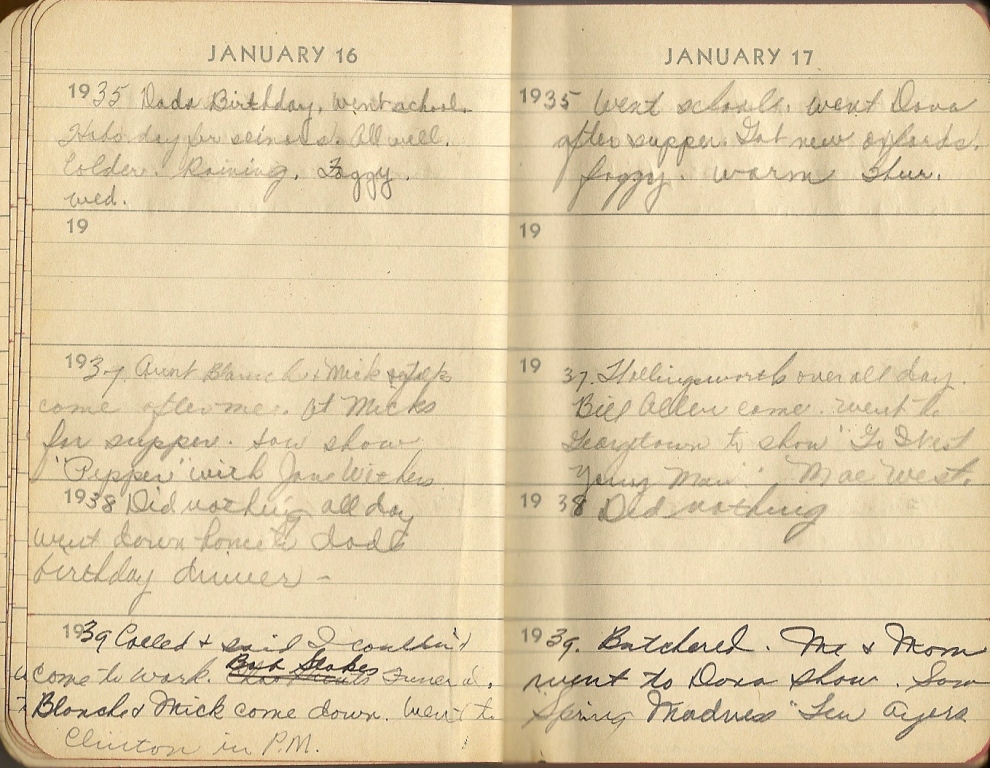 JANUARY 16
1935 Dads Birthday. Went school.
day for All well.
Colder. Raining. Foggy.
wed.
19
1937 Aunt Blanch & Mick
come after me. At Micks
for supper. Saw show
"Pepper" with Jane Withers
1938 Did nothing all day
went down home to dads
birthday dinner -
1939 Called & said I couldn't
come to work. Bob Stokes Funeral.
Blanche & Mick come down. Went to
Clinton in P.M.
JANUARY 17
1935 Went school. Went Dana
after supper. Got new oxfords.
foggy. warm Thur.
19
1937. Hollingsworth over all day.
Bill Allen come. Went to
Georgetown to show "Go West
Young Man". Mae West.
1938 Did nothing
1939. Butchered. Me & Mom
went to Dana show. Saw
Spring Madness" Lew Ayers